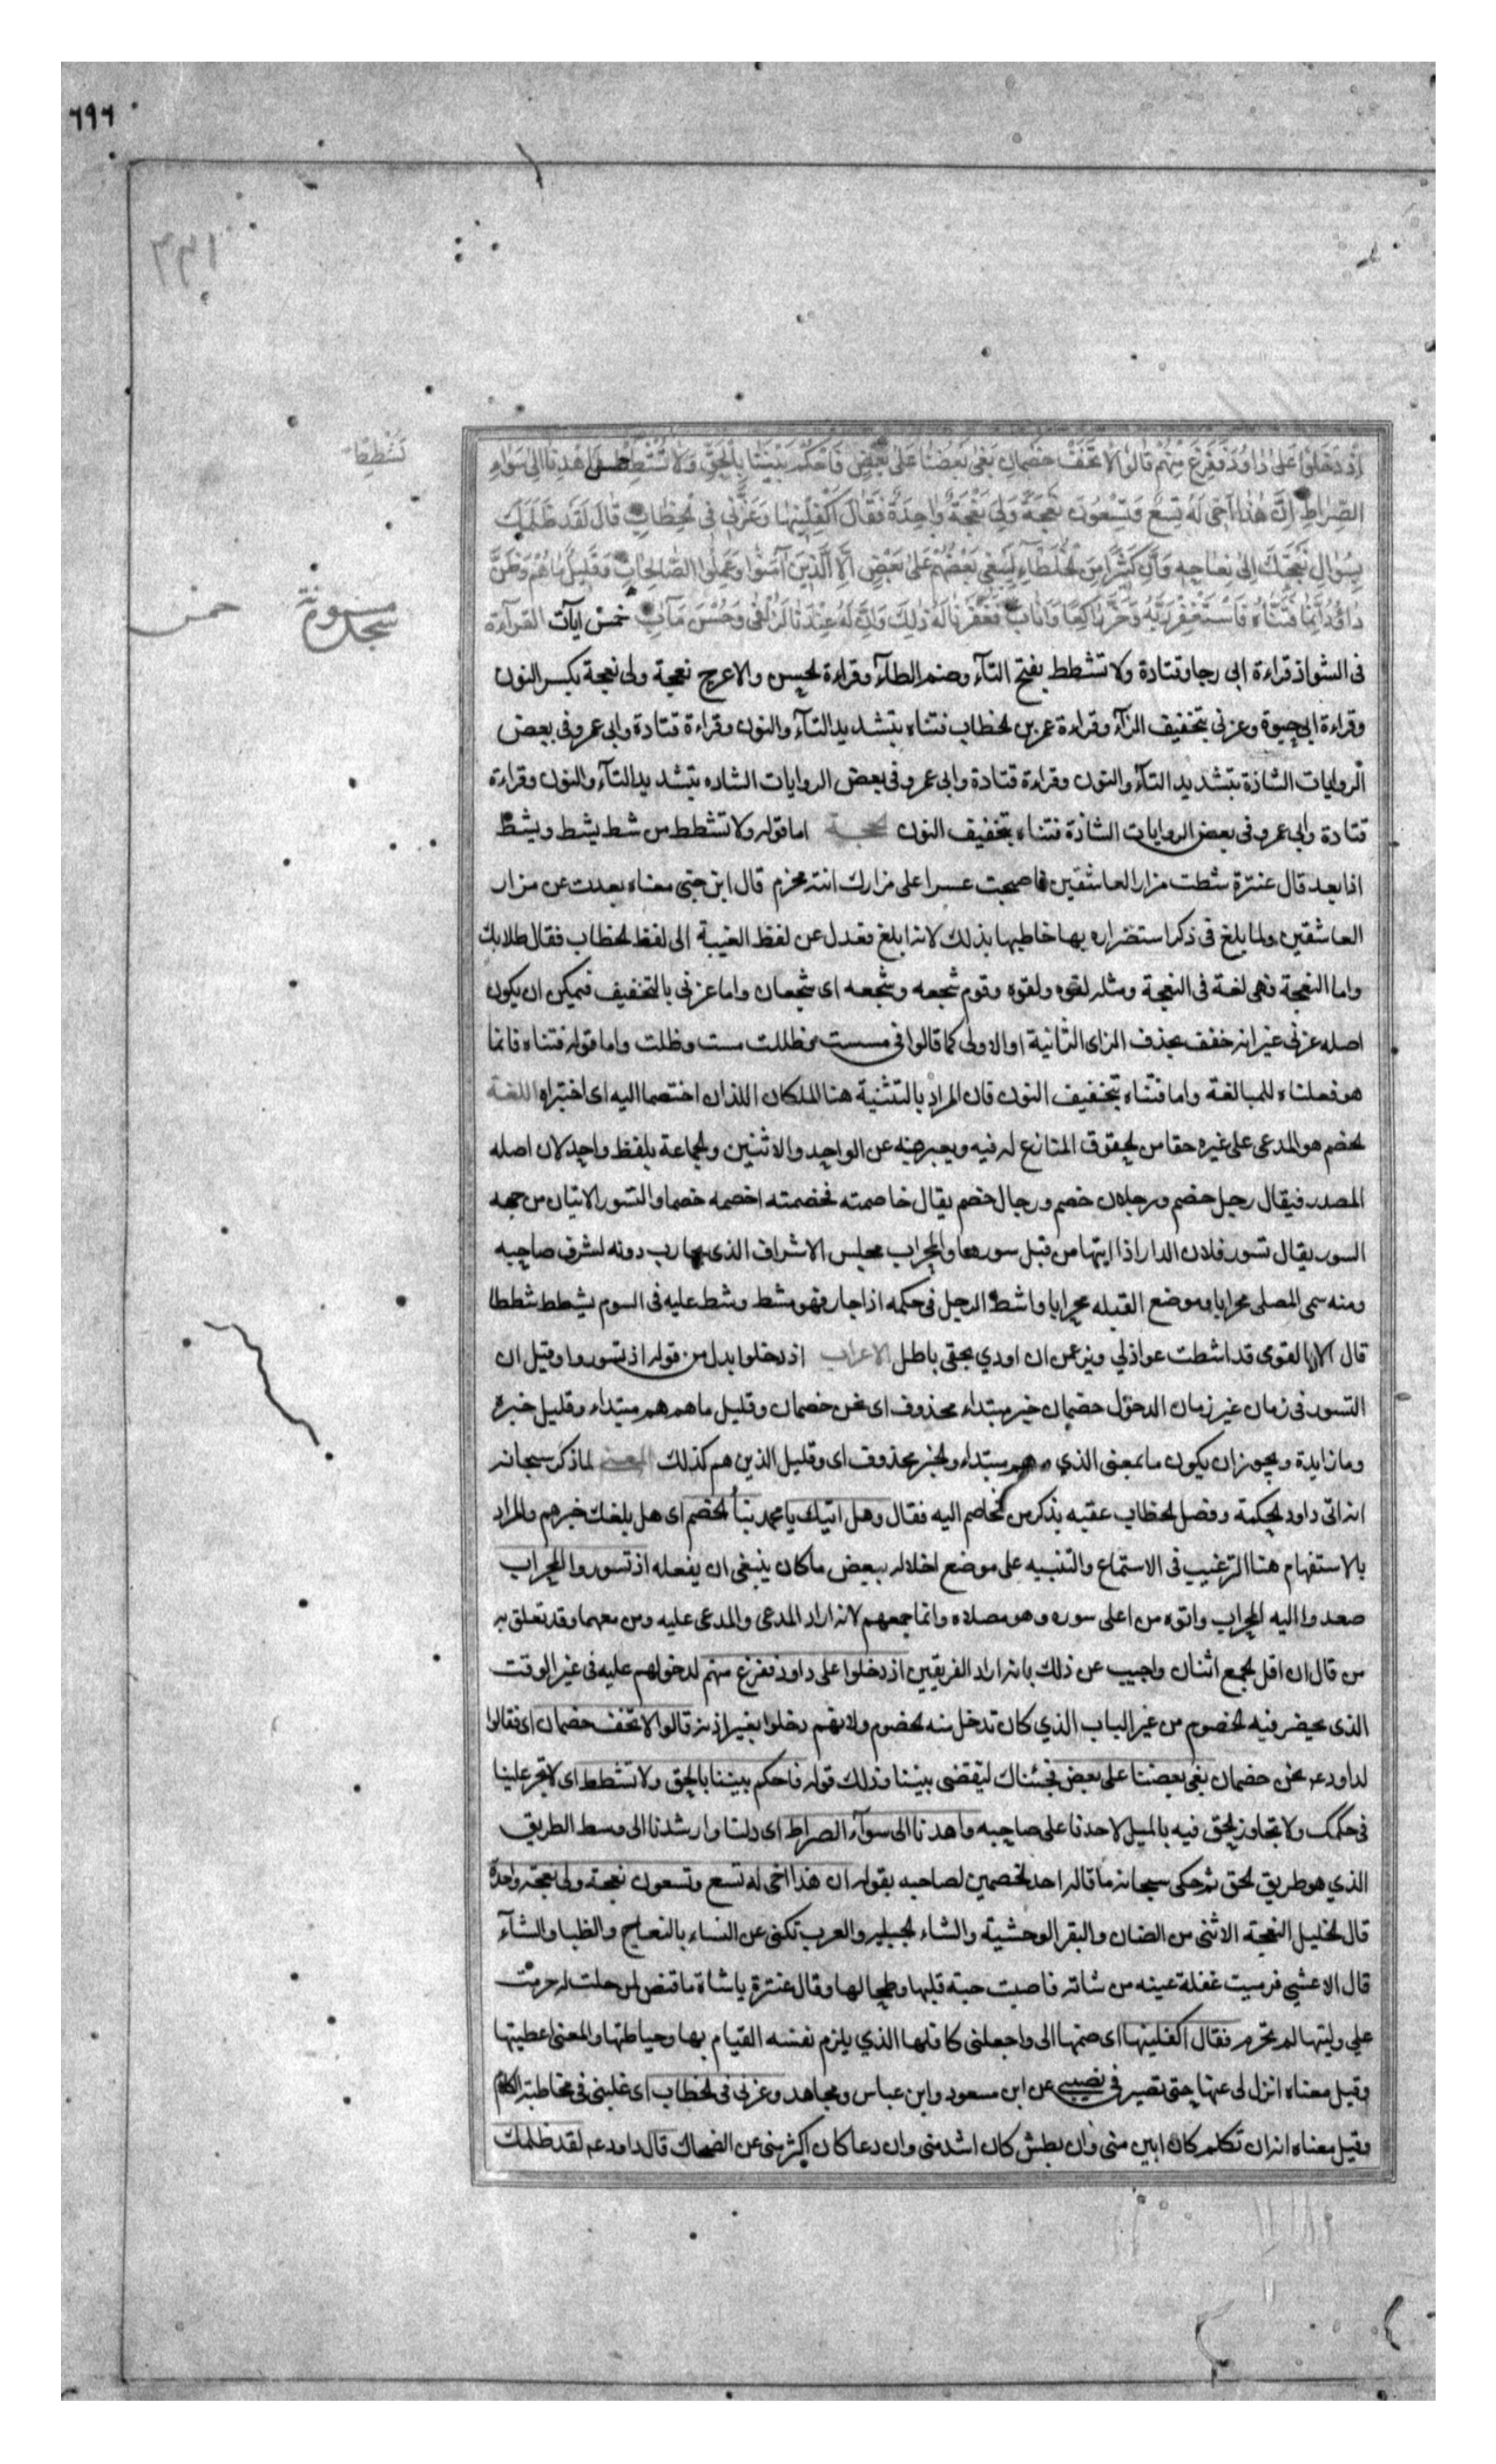 ٦٩٦
تشطط
سجدة مسنونة
خمس
اِذْ دَخَلُوا عَلىٰ دٰاوُدَ فَفَزِعَ مِنْهُمْ قٰالُوا لاٰ تَخَفْ خَصْمٰانِ بَغىٰ بَعْضُنٰا عَلىٰ بَعْضٍ فَاحْكُمْ بَيْنَنٰا بِالْحَقِّ وَلاٰ تُشْطِطْ وَاهْدِنٰا اِلىٰ سَوٰاءِ
الصِّرٰاطِ اِنَّ هٰذٰا اَخِى لَهُ تِسْعٌ وَتِسْعُونَ نَعْجَةً وَلِىَ نَعْجَةٌ وٰاحِدَةٌ فَقٰالَ اَكْفِلْنِيهٰا وَعَزَّنِى فِى الْخِطٰابِ قٰالَ لَقَدْ ظَلَمَكَ
بِسُؤٰالِ نَعْجَتِكَ اِلىٰ نِعٰاجِهِ وَاِنَّ كَثِيرًا مِنَ الْخُلَطٰاءِ لَيَبْغِى بَعْضُهُمْ عَلىٰ بَعْضٍ اِلاَّ الَّذِينَ آمَنُوا وَعَمِلُوا الصّٰالِحٰاتِ وَقَلِيلٌ مٰا هُمْ وَظَنَّ
دٰاوُدُ اَنَّمٰا فَتَنّٰاهُ فَاسْتَغْفَرَ رَبَّهُ وَخَرَّ رٰاكِعًا وَاَنٰابَ فَغَفَرْنٰا لَهُ ذٰلِكَ وَاِنَّ لَهُ عِنْدَنٰا لَزُلْفىٰ وَحُسْنَ مَآبٍ خمس آيات القرآءة
فى الشواذ قراءة ابى رجا وقتادة ولا تشطط بفتح التآء وضم الطآء وقراءة الحسن والاعرج نعجة ولى نعجة بكسر النون
وقراءة ابى حيوة وعزنى بتخفيف الزآء وقراءة عمر بن الخطاب فتناه بتشديد التآء والنون وقراءة قتادة وابى عمرو فى بعض
الروايات الشاذة بتشديد التآء والنون وقراءة قتادة وابى عمرو فى بعض الروايات الشاده بتشديد التآء والنون وقراءة
قتادة وابى عمرو فى بعض الروايات الشاذة فتناه بتخفيف النون الحجة اما قوله ولا تشطط من شط يشط ويشط
اذا بعد قال عنترة شطت مزار العاشقين فاصبحت عسرا على مزارك ابنة مخرم قال ابن جنى معناه بعدت عن مزار
العاشقين ولما بلغ فى ذكر استضراره بها خاطبها بذلك لانه ابلغ فعدل عن لفظ الغيبة الى لفظ الخطاب فقال طلابك
واما النعجة فهى لغة فى النعجة ومثله لقوه ولقوه وقوم شجعه وشجعه اى شجعان واما عزنى بالتخفيف فيمكن ان يكون
اصله عزنى غير انه خفف بحذف الزاى الثانية او الاولى كما قالوا فى مسست وظللت مست وظلت واما قوله فتناه فانما
هو فعلناه للمبالغة واما فتناه بتخفيف النون فان المراد بالتثنية هنا الملكان اللذان اختصما اليه اى اختبراه اللغة
الخصم هو المدعى على غيره حقا من الحقوق المتنازع له فيه ويعبر به عن الواحد والاثنين والجماعة بلفظ واحد لان اصله
المصدر فيقال رجل خصم ورجلان خصم ورجال خصم يقال خاصمته فخصمته اخصمه خصما والتسور الاتيان من جهه
السور يقال تسور فلان الدار اذا اتيتها من قبل سورها والمحراب مجلس الاشراف الذى يحارب دونه لشرف صاحبه
ومنه سمى المصلى محرابا وموضع القبله محرابا واشط الرجل فى حكمه اذا جار فهو مشط وشط عليه فى السوم يشطط شططا
قال الا يا لقوى قد اشطت عواذلي ويزعمن ان اودي بحقى باطل الاعراب اذ دخلوا بدل من قوله اذ تسوروا وقيل ان
التسور فى زمان غير زمان الدخول خصمان خبر مبتداء محذوف اى نحن خصمان وقليل ما هم هم مبتداء وقليل خبره
وما زايدة ويجوز ان يكون ما بمعنى الذي وهم مبتداء والخبر محذوف اى وقليل الذين هم كذلك المعنى لما ذكر سبحانه
انه اتى داود الحكمة وفصل الخطاب عقبه بذكر من تخاصم اليه فقال وهل اتيك يا محمد نبأ الخصم اى هل بلغك خبرهم والمراد
بالاستفهام هنا الترغيب فى الاستماع والتنبيه على موضع اخلاله ببعض ما كان ينبغى ان يفعله اذ تسوروا المحراب
صعدوا اليه المحراب واتوه من اعلى سوره وهو مصلاه وانما جمعهم لانه اراد المدعى والمدعى عليه ومن معهما وقد تعلق به
من قال ان اقل الجمع اثنان واجيب عن ذلك بانه اراد الفريقين اذ دخلوا على داود ففزع منهم لدخولهم عليه فى غير الوقت
الذى يحضر فيه الخصوم من غير الباب الذي كان تدخل منه الخصوم ولانهم دخلوا بغير اذنه قالوا لا تخف خصمان اى فقالوا
لداود ع نحن خصمان بغى بعضنا على بعض فجئناك لتقضى بيننا وذلك قوله فاحكم بيننا بالحق ولا تشطط اى لا تجر علينا
فى حكمك ولا تجاوز الحق فيه بالميل لاحدنا على صاحبه واهدنا الى سوآء الصراط اى دلنا وارشدنا الى وسط الطريق
الذي هو طريق الحق ثم حكى سبحانه ما قاله احد الخصمين لصاحبه بقوله ان هذا اخى له تسع وتسعون نعجة ولى نعجة واحدة
قال الخليل النعجة الانثى من الضان والبقر الوحشية والشاء الجبلية والعرب تكنى عن النساء بالنعاج والظبا والشآء
قال الاعشي فرميت غفلة عينه من شاته فاصبت حبة قلبها وطحالها وقال عنترة يا شاة ما قنص لمن حلت له حرمت
علي وليتها لم تحرم فقال اكفلنيها اى ضمها الى واجعلنى كافلها الذي يلزم نفسه القيام بها وحياطتها والمعنى اعطنيها
وقيل معناه انزل لى عنها حتى تصير فى نصيبى عن ابن مسعود وابن عباس ومجاهد وعزنى فى الخطاب اى غلبنى فى مخاطبة الكلام
وقيل معناه انه ان تكلم كان ابين منى وان بطش كان اشد منى وان دعا كان اكثر منى عن الضحاك قال داود ع لقد ظلمك